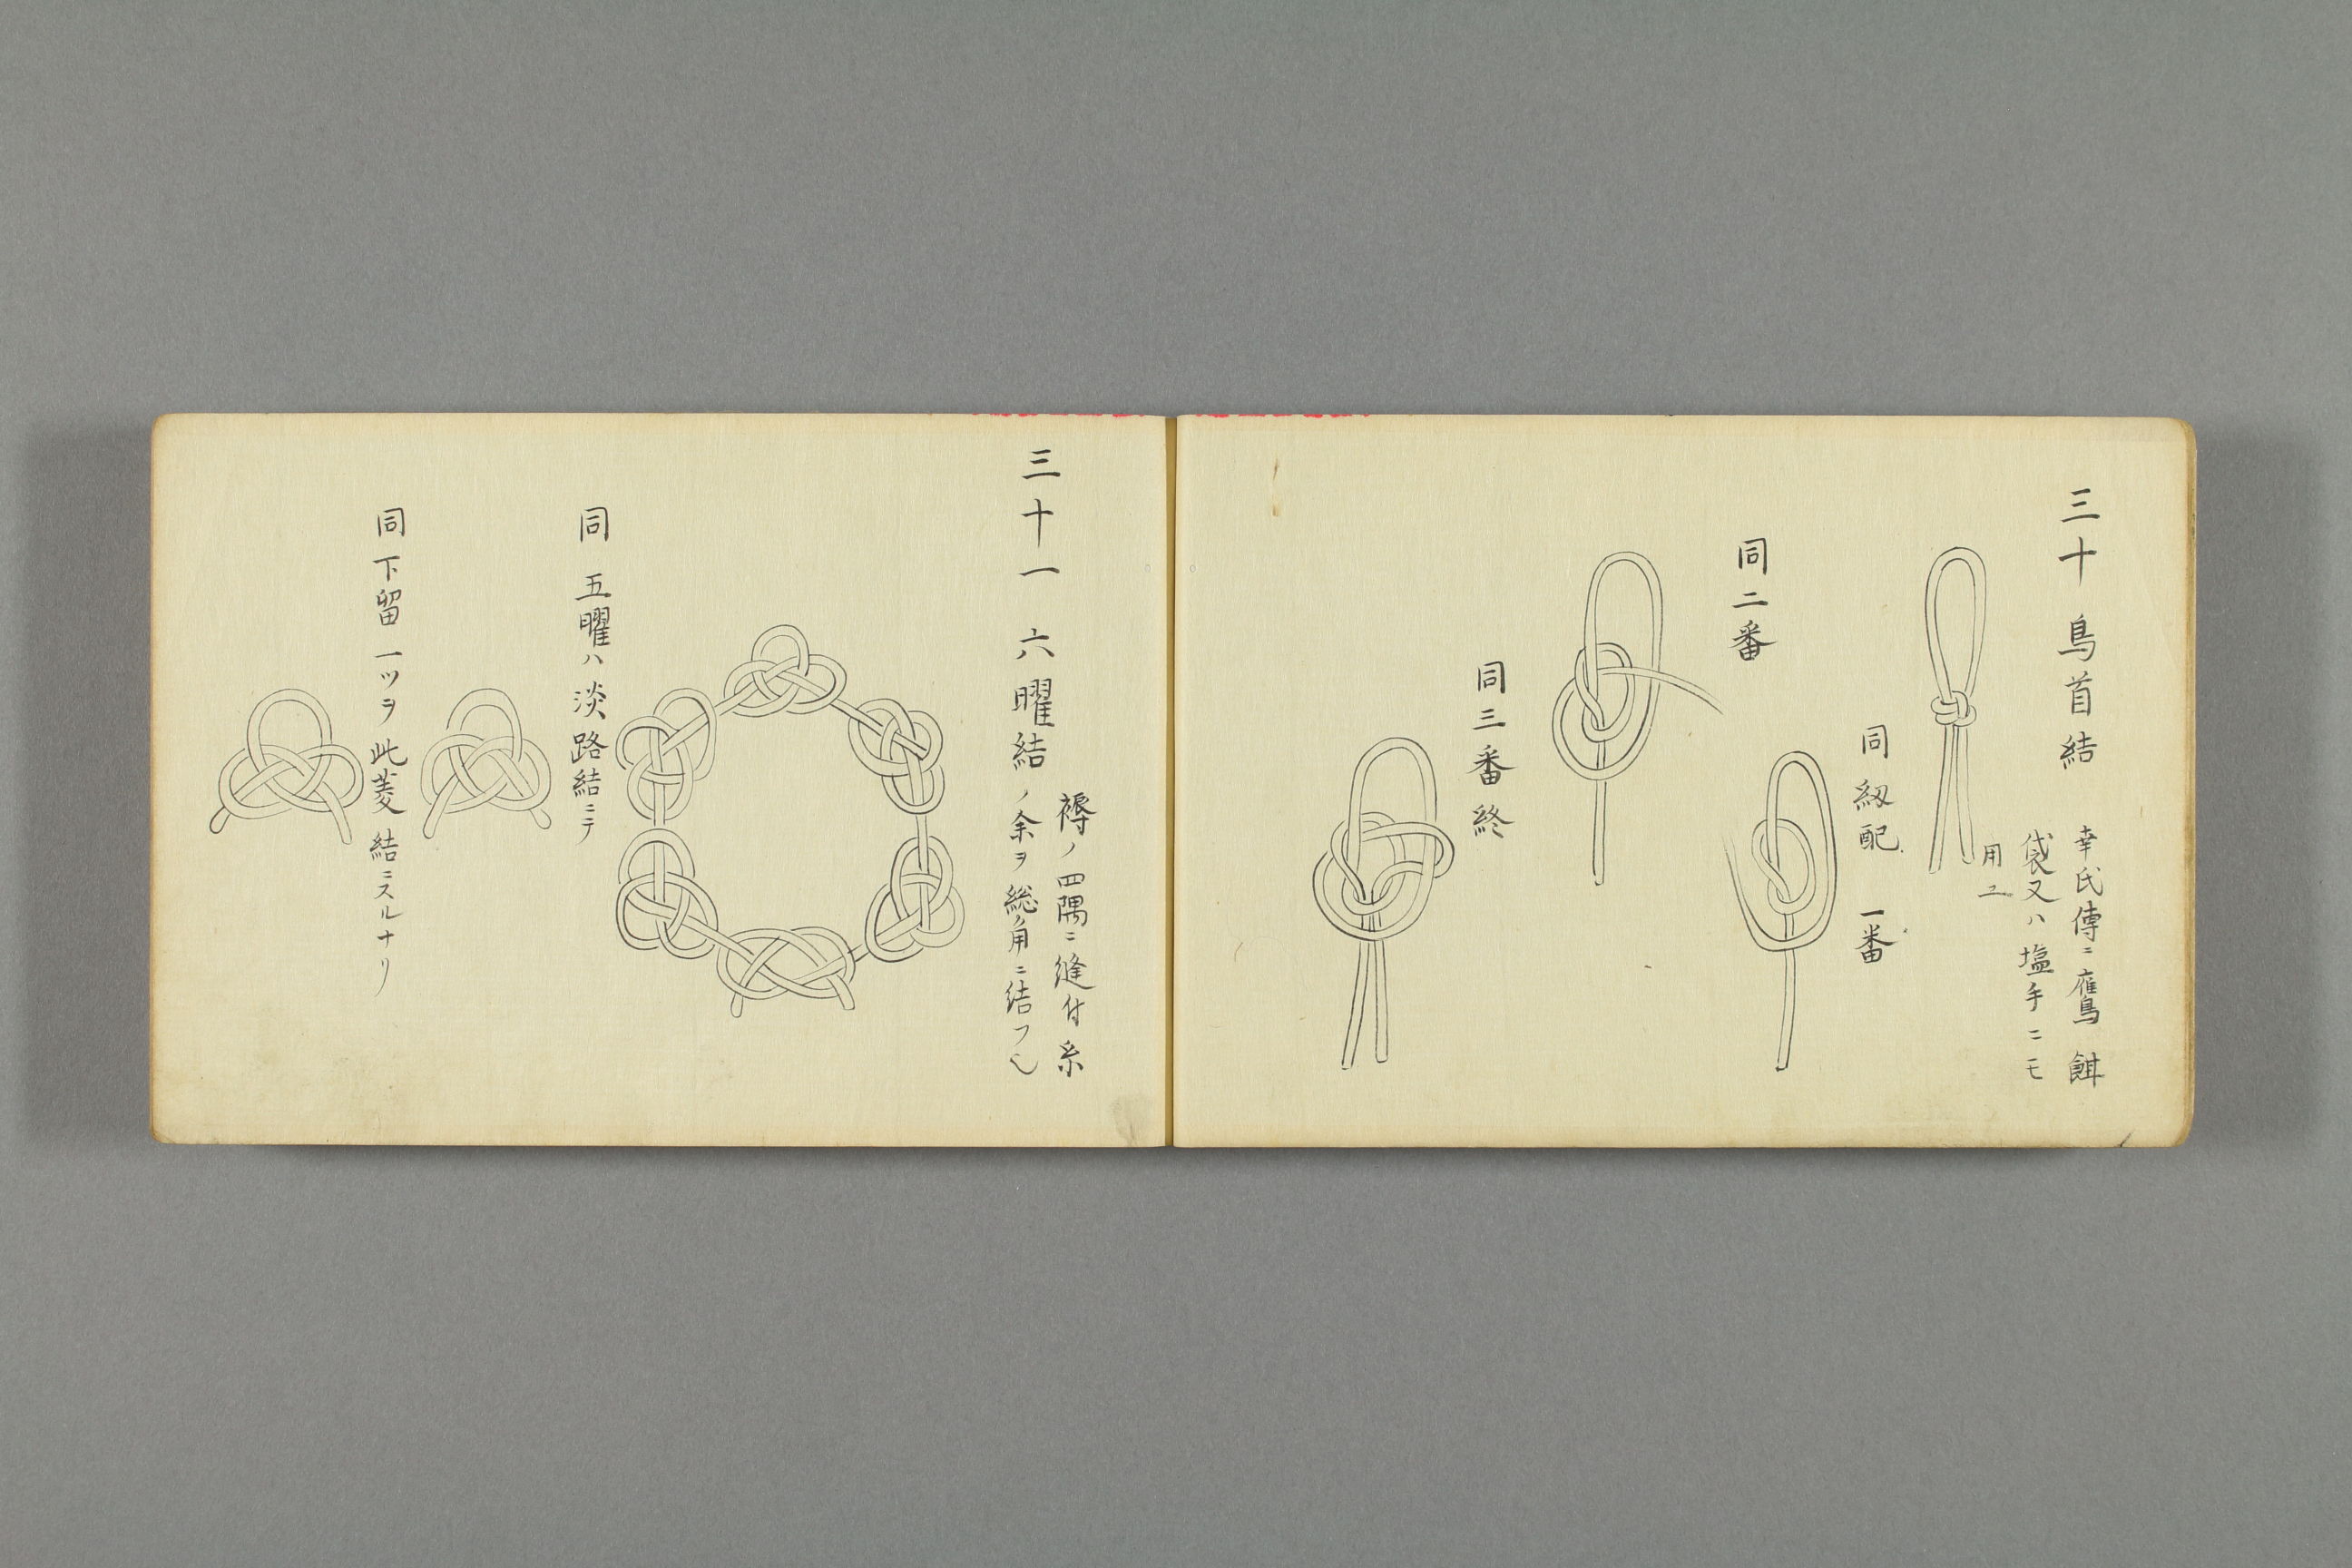 三十 鳥首結
幸氏傳ニ鷹餌
袋又ハ塩手ニモ
用ユ
同 紉配 一番
同二番
同三番終
三十一 六曜結
褥ノ四隅ニ縫付糸
ノ余ヲ総角ニ結フ也
同 五曜ハ淡路結ニテ
同 下留一ツヲ此菱結ニスルナリ